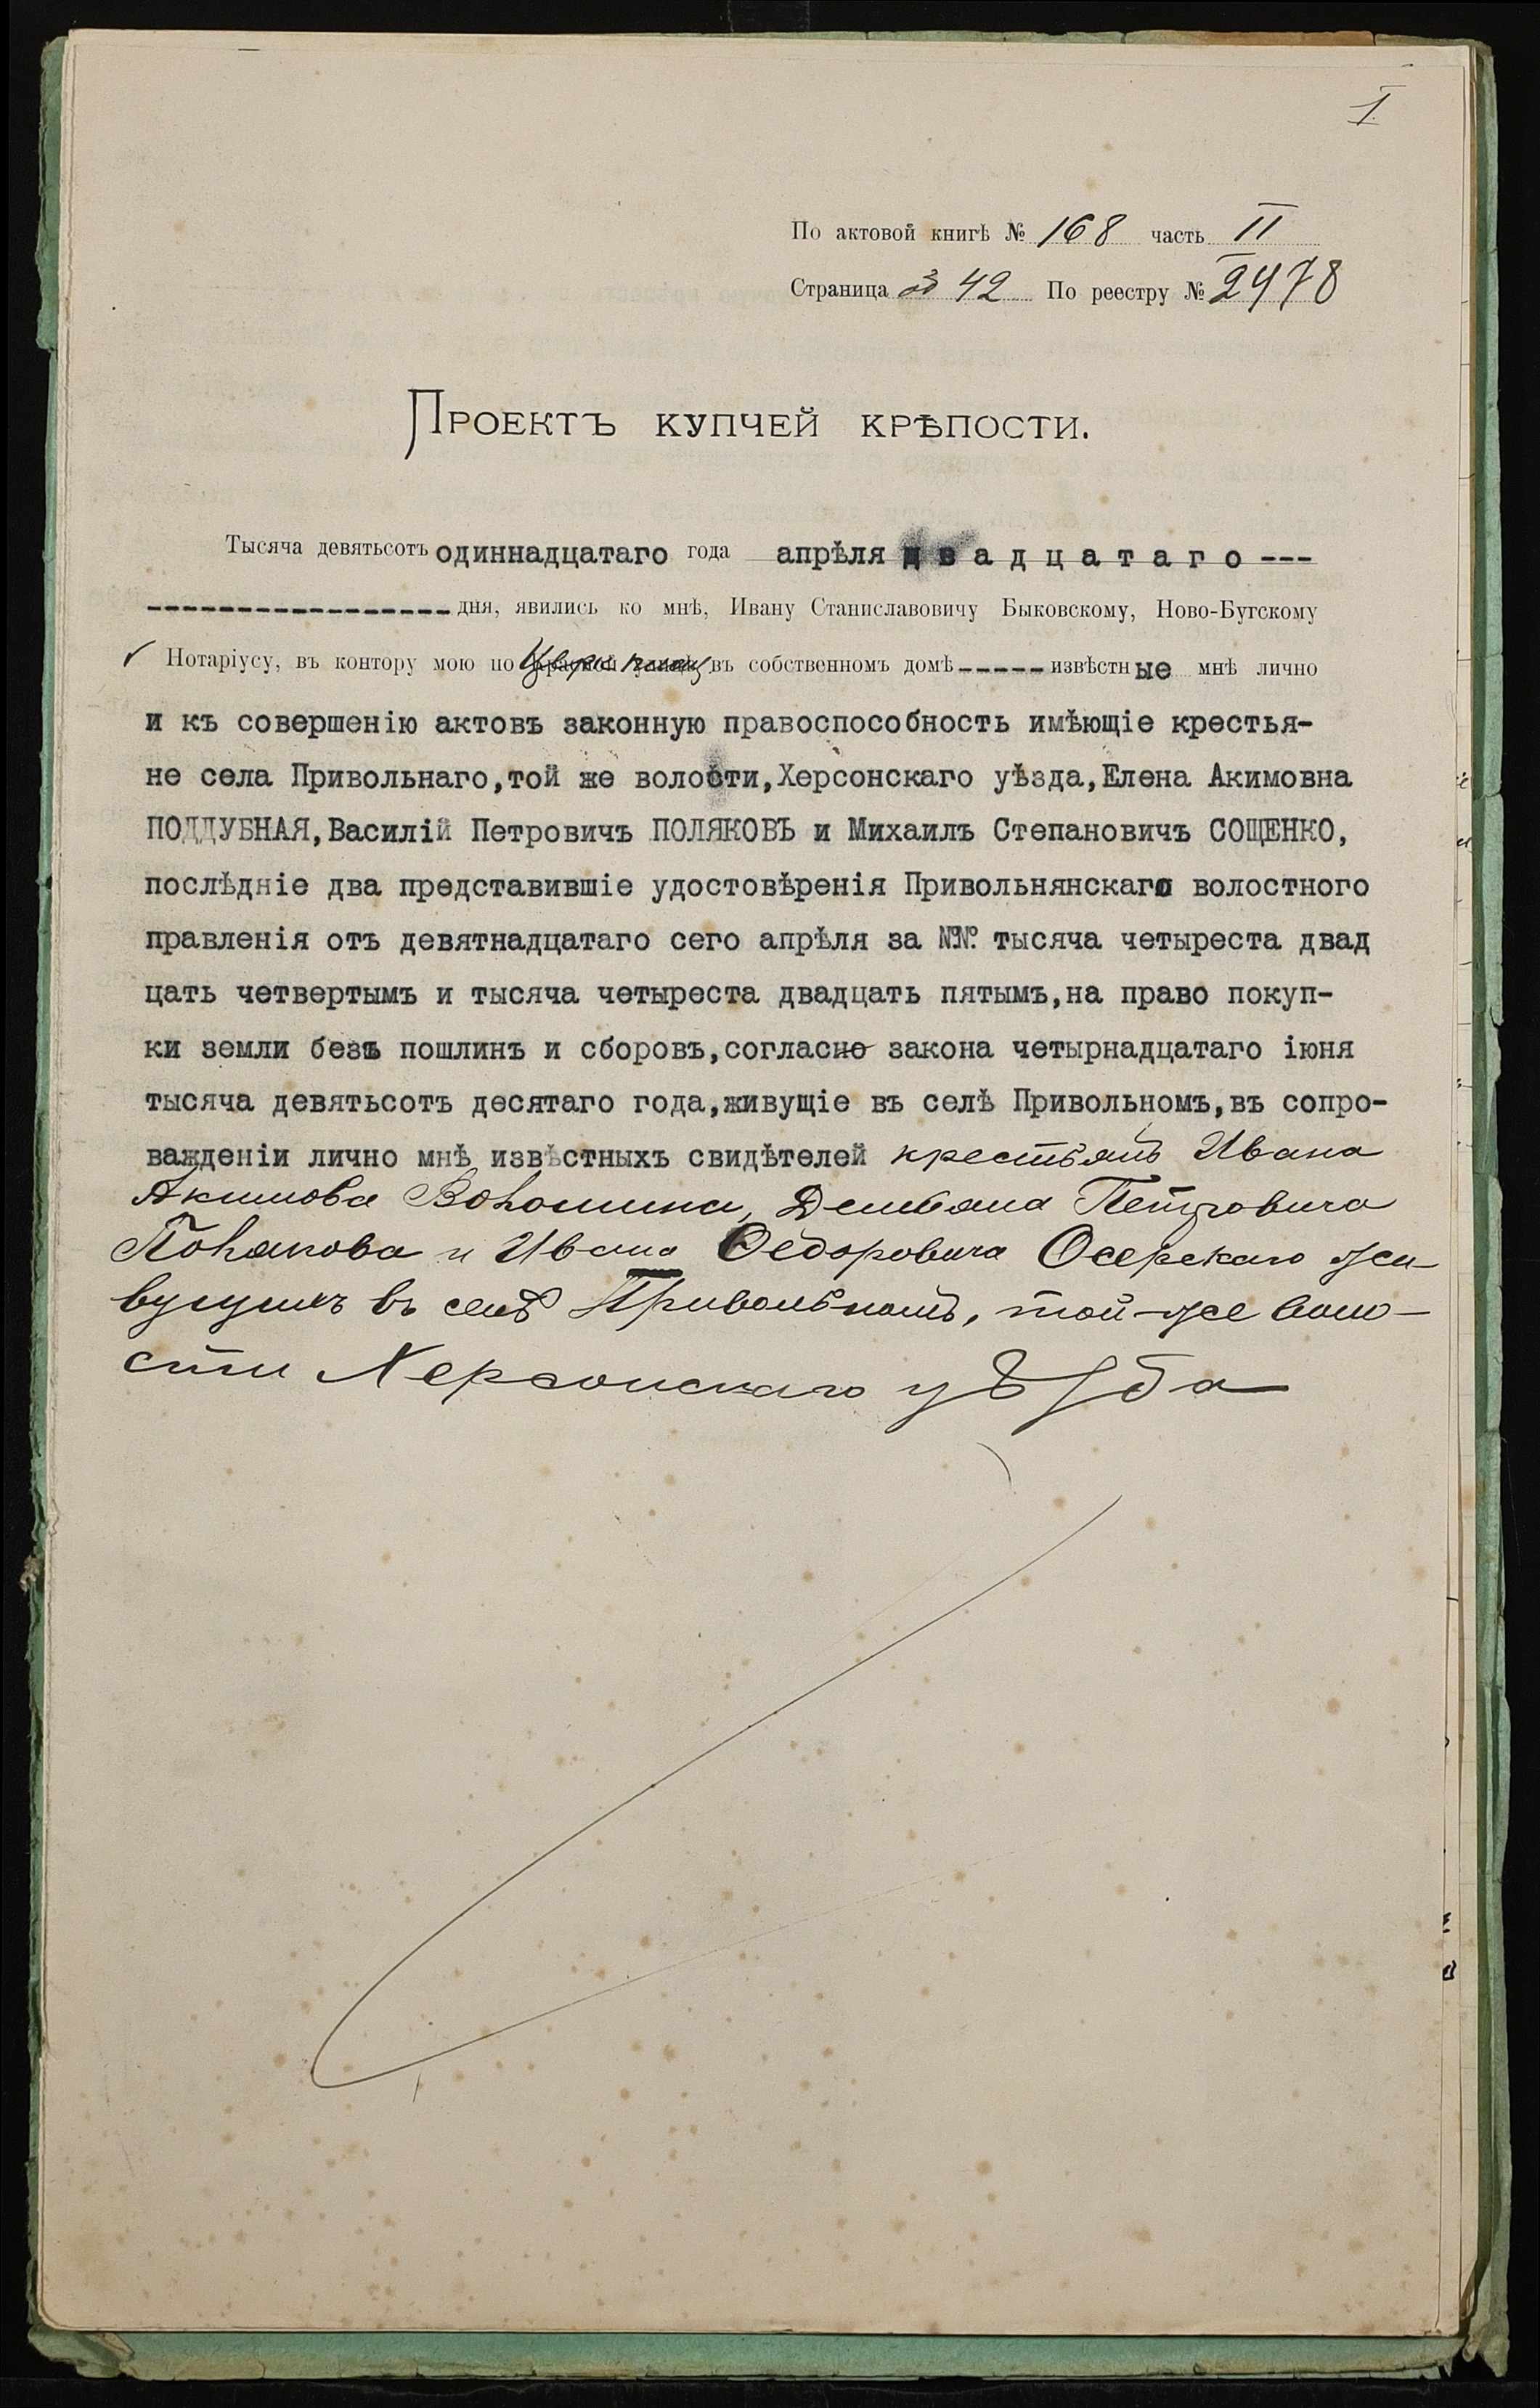 1.
По актовой книгѣ № 168 часть II
Страница 42 По реестру № 2478
Проектъ купчей крѣпости.
Тысяча девятьсотъ одиннадцатаго года апрѣля двадцатаго ---
дня, явились ко мнѣ, Ивану Станиславовичу Быковскому, Ново-Бугскому
Нотаріусу, въ контору мою по въ собственномъ домѣ ----- извѣстные мнѣ лично
и къ совершенію актовъ законную правоспособность имѣющіе крестья-
не села Привольнаго, той же волости, Херсонскаго уѣзда, Елена Акимовна
ПОДДУБНАЯ, Василій Петровичъ ПОЛЯКОВЪ и Михаилъ Степановичъ СОЩЕНКО,
послѣдніе два представившіе удостовѣренія Привольнянскаго волостного
правленія отъ девятнадцатаго сего апрѣля за №№. тысяча четыреста двад
цать четвертымъ и тысяча четыреста двадцать пятымъ, на право покуп-
ки земли безъ пошлинъ и сборовъ, согласно закона четырнадцатаго іюня
тысяча девятьсотъ десятаго года, живущіе въ селѣ Привольномъ, въ сопро-
вожденіи лично мнѣ извѣстныхъ свидѣтелей крестьянъ Ивана
Акимова Волошина, Демьяна Петровича
Полякова и Ивана Федоровича Осерскаго жи-
вущихъ въ селѣ Привольномъ, той-же воло-
сти Херсонскаго уѣзда